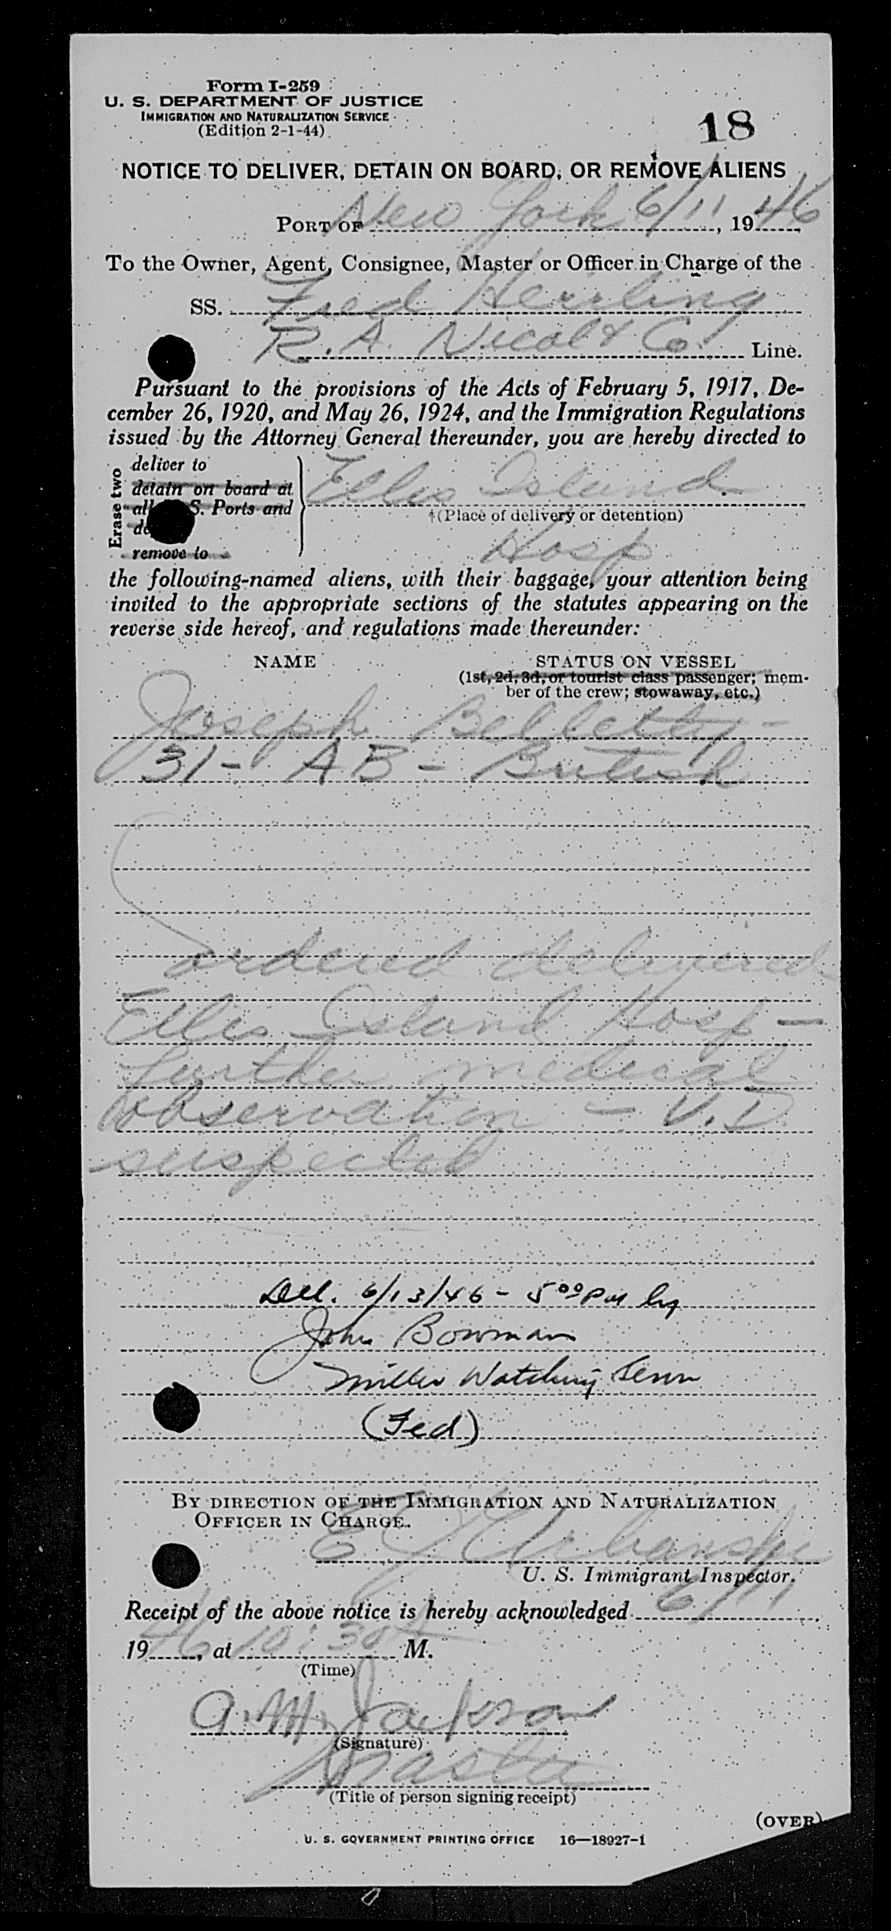 Form I-259
U. S. DEPARTMENT OF JUSTICE
IMMIGRATION AND NATURALIZATION SERVICE
(Edition 2-1-44)
18
NOTICE TO DELIVER, DETAIN ON BOARD, OR REMOVE ALIENS
PORT OF New York 6/11, 1946
To the Owner, Agent, Consignee, Master or Officer in Charge of the
SS. Fred Herrling
R. A. Nicol & Co. Line.
Pursuant to the provisions of the Acts of February 5, 1917, De-
cember 26, 1920, and May 26, 1924, and the Immigration Regulations
issued by the Attorney General thereunder, you are hereby directed to
Erase two
deliver to
detain on board at
all S. Ports and
remove to
Ellis Island
(Place of delivery or detention)
Hosp
the following-named aliens, with their baggage, your attention being
invited to the appropriate sections of the statutes appearing on the
reverse side hereof, and regulations made thereunder:
NAME
STATUS ON VESSEL
(1st, 2d, 3d, or tourist class passenger; mem-
ber of the crew; stowaway, etc.)
Joseph
31 - AB - British
ordered delivered
Ellis Island Hosp -
further medical
observation - V.D.
suspected
Del. 6/13/46 - 5 00 PM by
John Bowman
Miller Watching Serv
(Fed)
BY DIRECTION OF THE IMMIGRATION AND NATURALIZATION
OFFICER IN CHARGE.
E J Urbanski
U. S. Immigrant Inspector.
Receipt of the above notice is hereby acknowledged 6/11
1946, at 10:30 A M.
(Time)
A. M. Jackson
(Signature)
Master
(Title of person signing receipt)
(OVER)
U. S. GOVERNMENT PRINTING OFFICE 16—18927-1